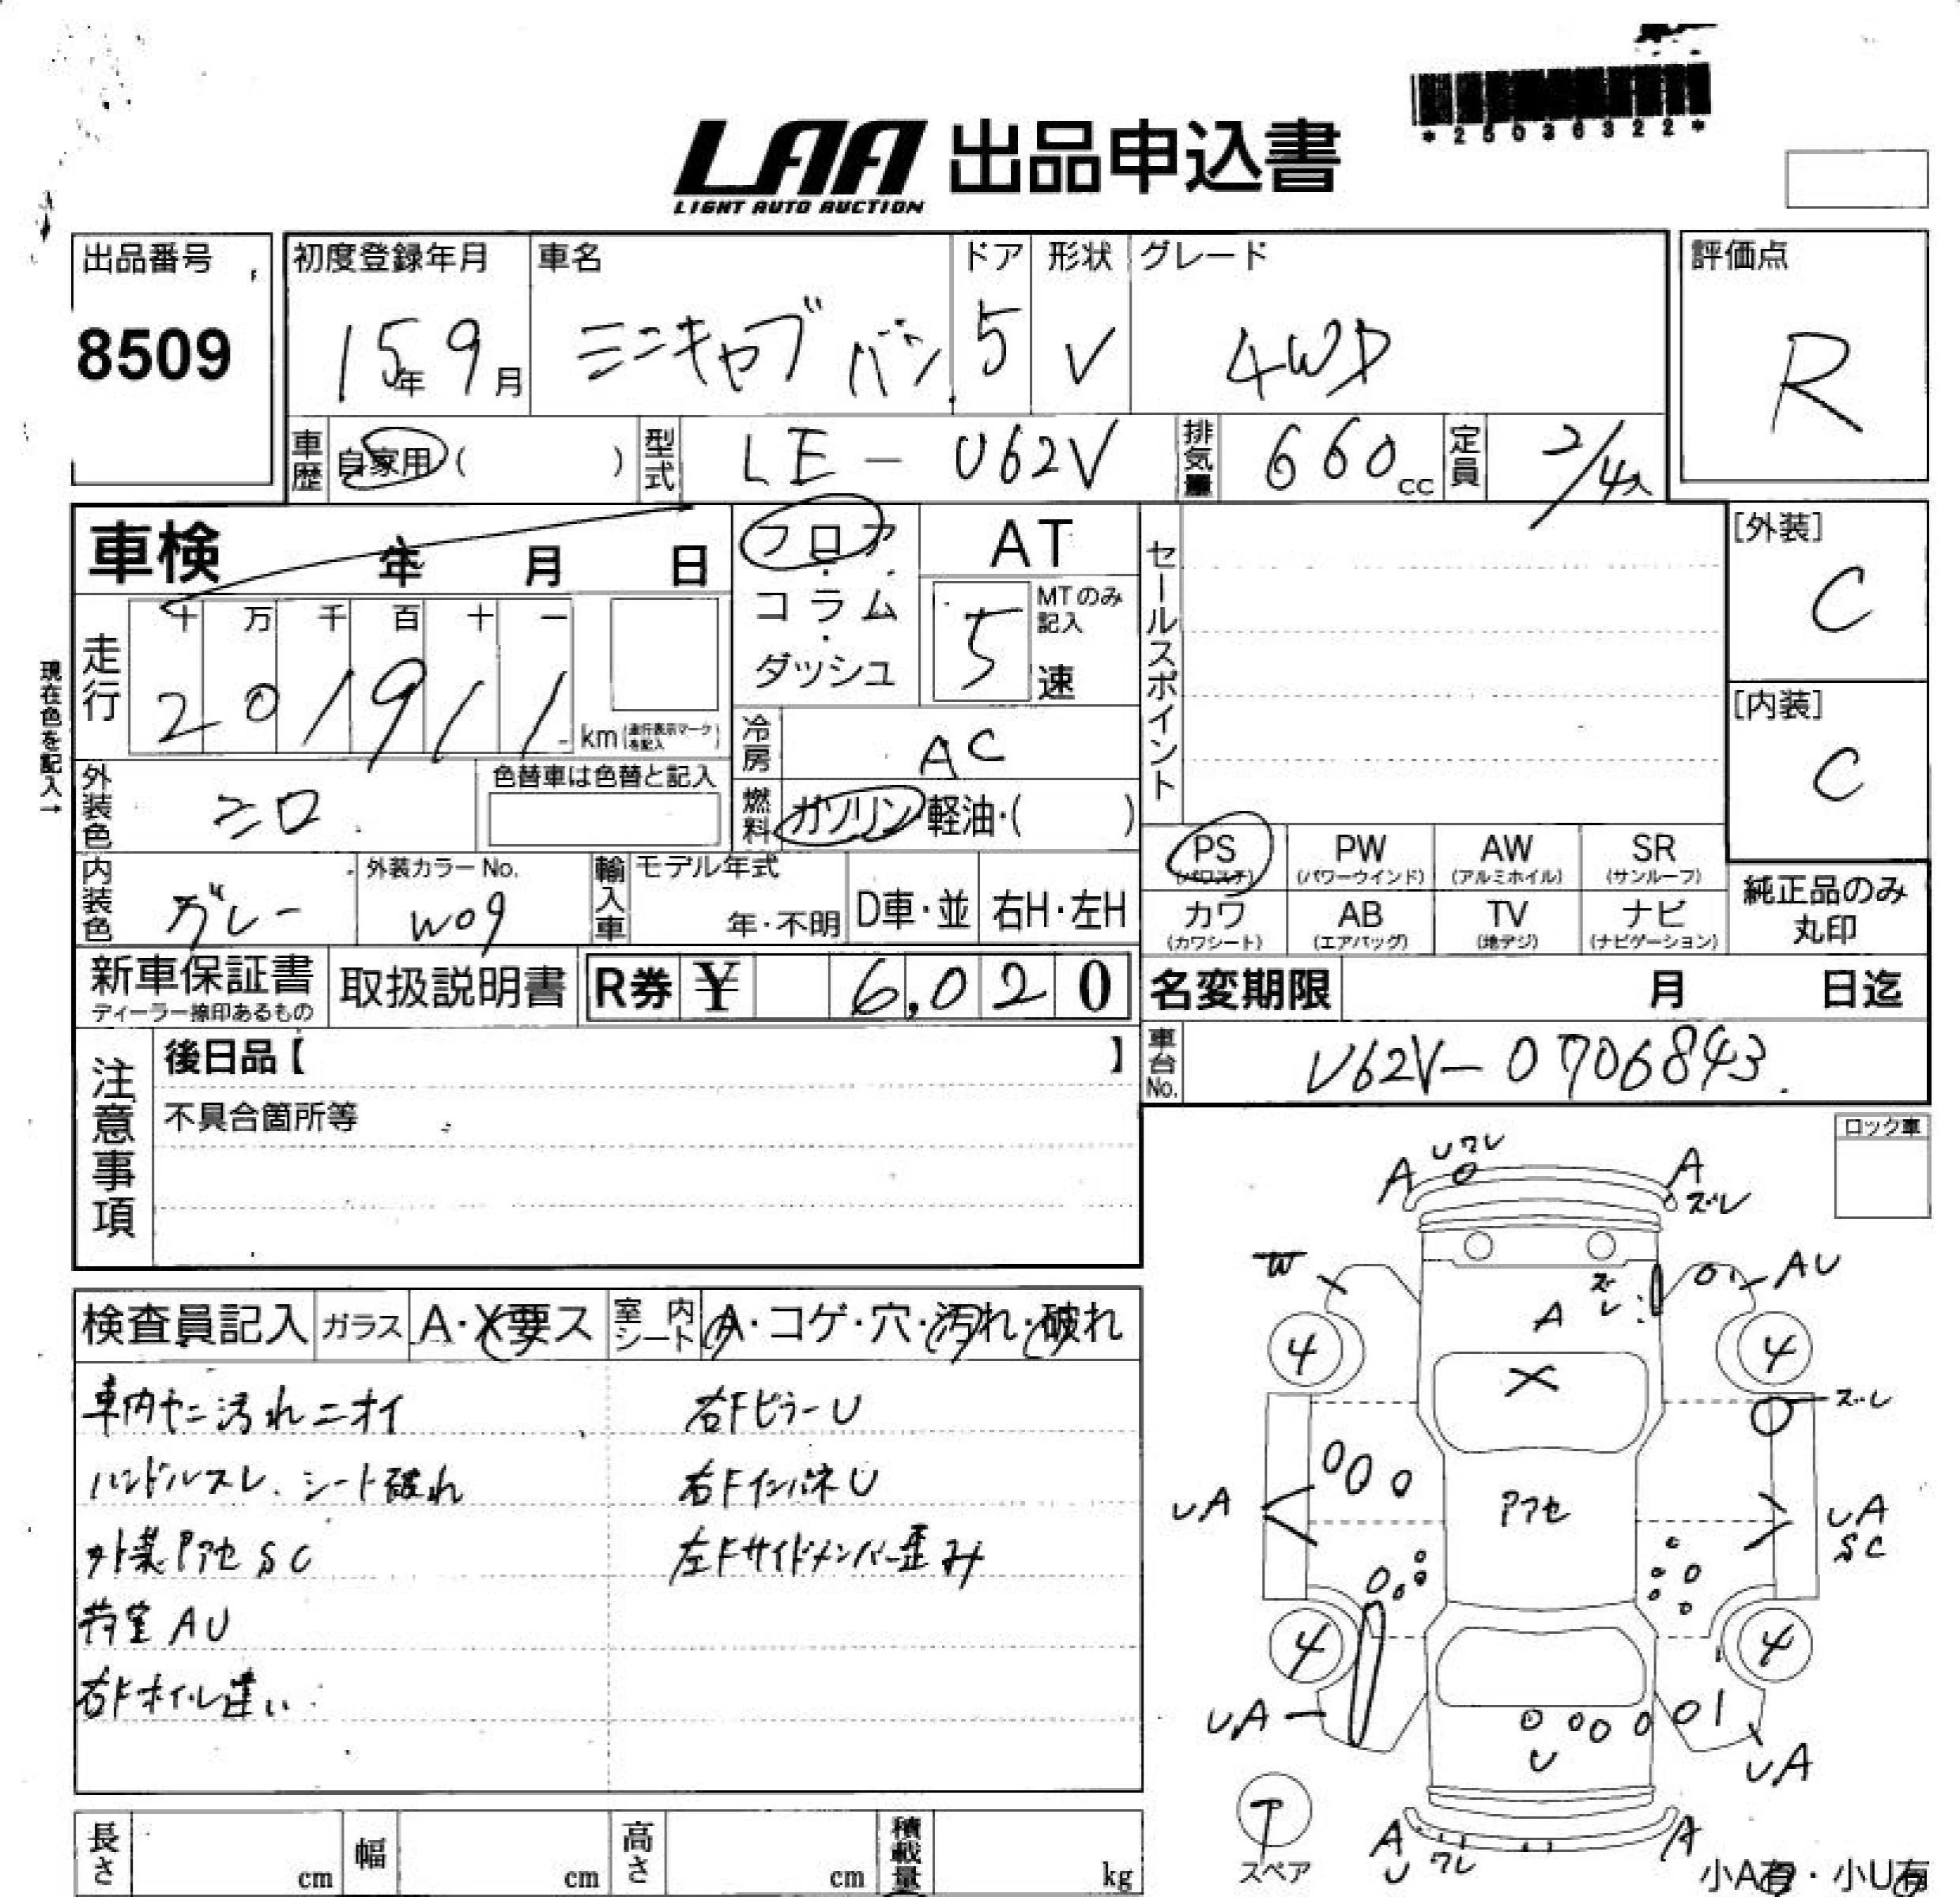 *25036322*
LAA 出品申込書
LIGHT AUTO AUCTION
出品番号
8509
初度登録年月
15年9月
車名
ミニキャブ バン
ドア
5
形状
V
グレード
4WD
評価点
R
車歴 自家用( )
型式 LE-U62V
排気量 660cc
定員 2/4人
車検 年 月 日
フロア・コラム・ダッシュ
AT
MTのみ記入
5速
セールスポイント
[外装]
C
[内装]
C
現在色を記入→
走行
十 万 千 百 十 一
201911 km(走行表示マークを記入)
冷房 AC
外装色 シロ
色替車は色替と記入
燃料 ガソリン・軽油・( )
内装色 グレー
外装カラーNo.
W09
輸入車 モデル年式
年・不明 D車・並 右H・左H
PS (パワステ)
PW (パワーウインド)
AW (アルミホイル)
SR (サンルーフ)
カワ (カワシート)
AB (エアバッグ)
TV (地デジ)
ナビ (ナビゲーション)
純正品のみ
丸印
新車保証書
ディーラー捺印あるもの
取扱説明書
R券 ¥ 6,020
名変期限 月 日迄
車台No. U62V-0706843
注意事項
後日品【 】
不具合箇所等
ロック車
検査員記入 ガラス A・X要ス 室内シート A・コゲ・穴・汚れ・破れ
車内ヤニ汚れニオイ
ハンドルスレ. シート破れ
外装アセ SC
荷室 AU
右Fホイル違い
右FピラーU
右FインパネU
左Fサイドメンバー歪み
A Uワレ A ズレ
W AU
A ズレ
4 4
X
ズレ
UA アセ UA
SC
4 4
UA U UA
T
スペア
A U ワレ A
小A有・小U有
長さ cm 幅 cm 高さ cm 積載量 kg